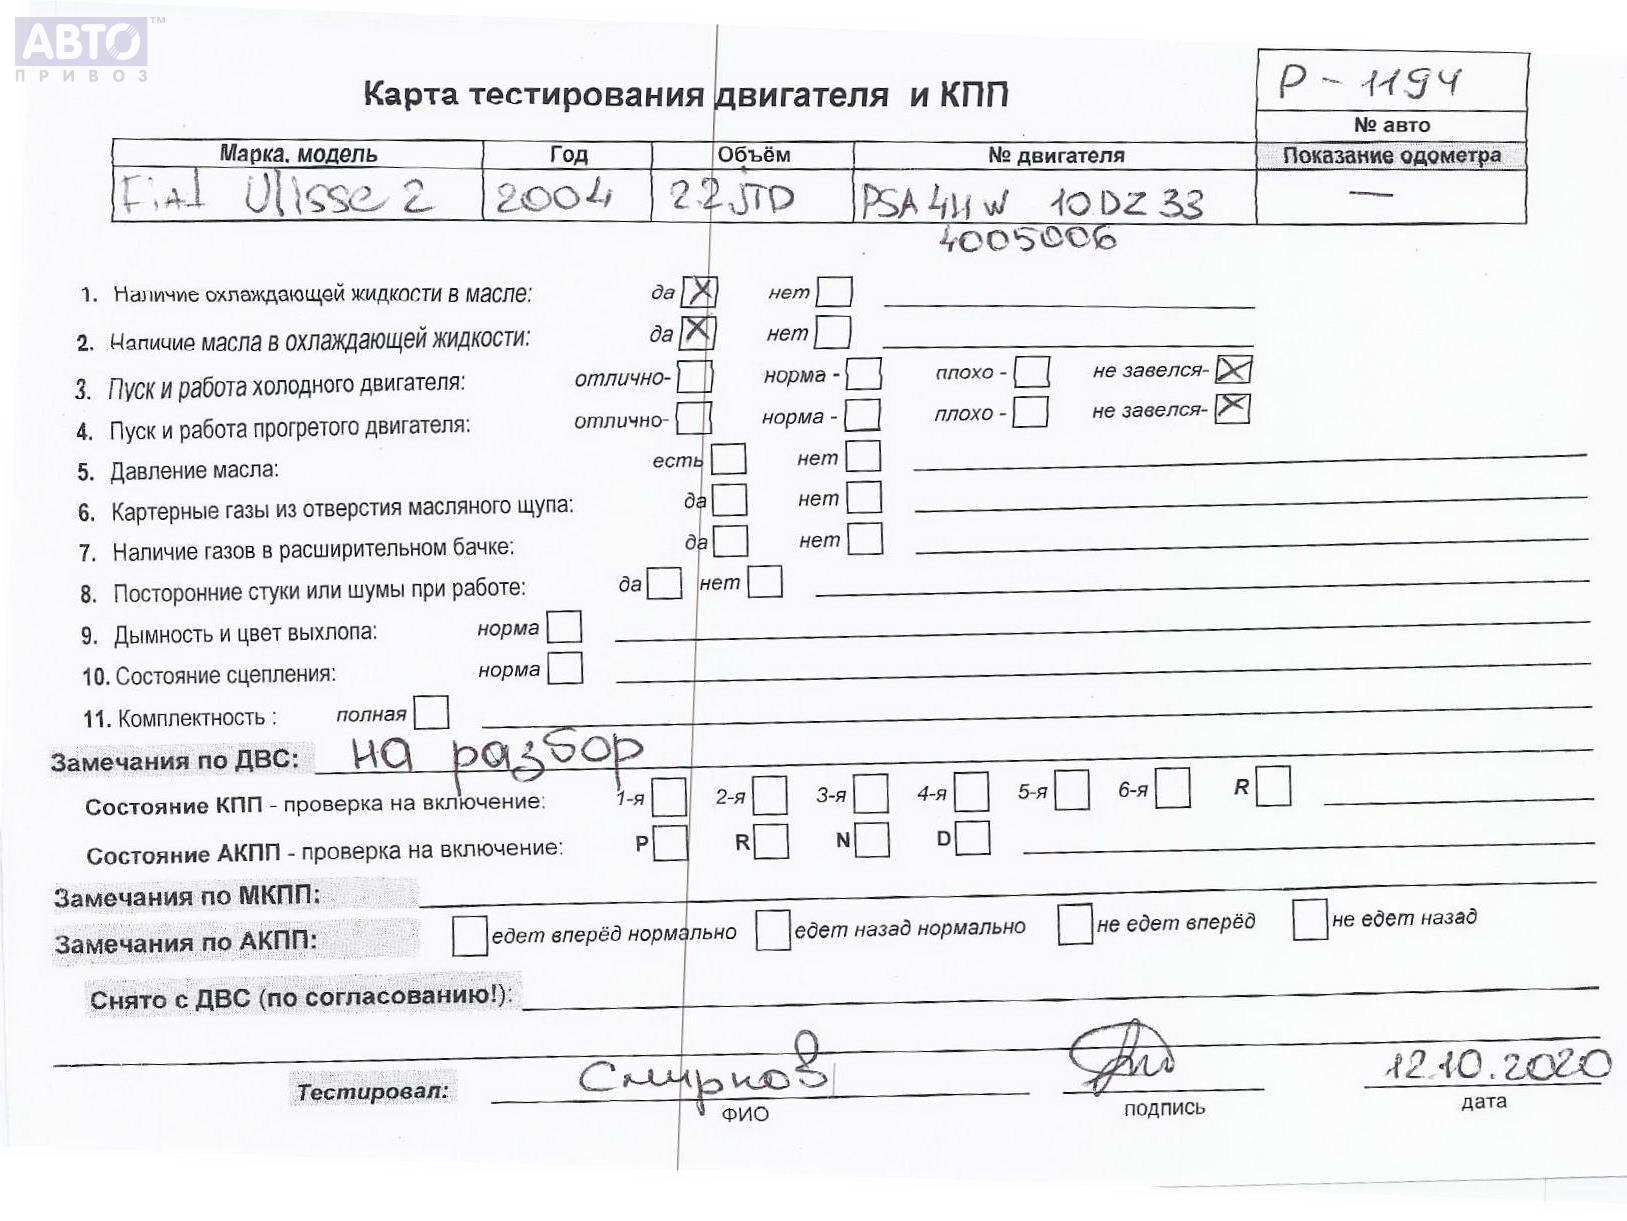 АВТО™
ПРИВОЗ
Карта тестирования двигателя и КПП
P - 1194
№ авто
Марка, модель Год Объём № двигателя Показание одометра
Fiat Ulisse 2 2004 2.2 JTD PSA 4HW 10DZ33 —
4005006
1. Наличие охлаждающей жидкости в масле: да X нет
2. Наличие масла в охлаждающей жидкости: да X нет
3. Пуск и работа холодного двигателя: отлично- норма - плохо - не завелся- X
4. Пуск и работа прогретого двигателя: отлично- норма - плохо - не завелся- X
5. Давление масла: есть нет
6. Картерные газы из отверстия масляного щупа: да нет
7. Наличие газов в расширительном бачке: да нет
8. Посторонние стуки или шумы при работе: да нет
9. Дымность и цвет выхлопа: норма
10. Состояние сцепления: норма
11. Комплектность : полная
Замечания по ДВС: на разбор
Состояние КПП - проверка на включение: 1-я 2-я 3-я 4-я 5-я 6-я R
Состояние АКПП - проверка на включение: P R N D
Замечания по МКПП:
Замечания по АКПП: едет вперёд нормально едет назад нормально не едет вперёд не едет назад
Снято с ДВС (по согласованию!):
Тестировал: Смирнов 12.10.2020
ФИО подпись дата